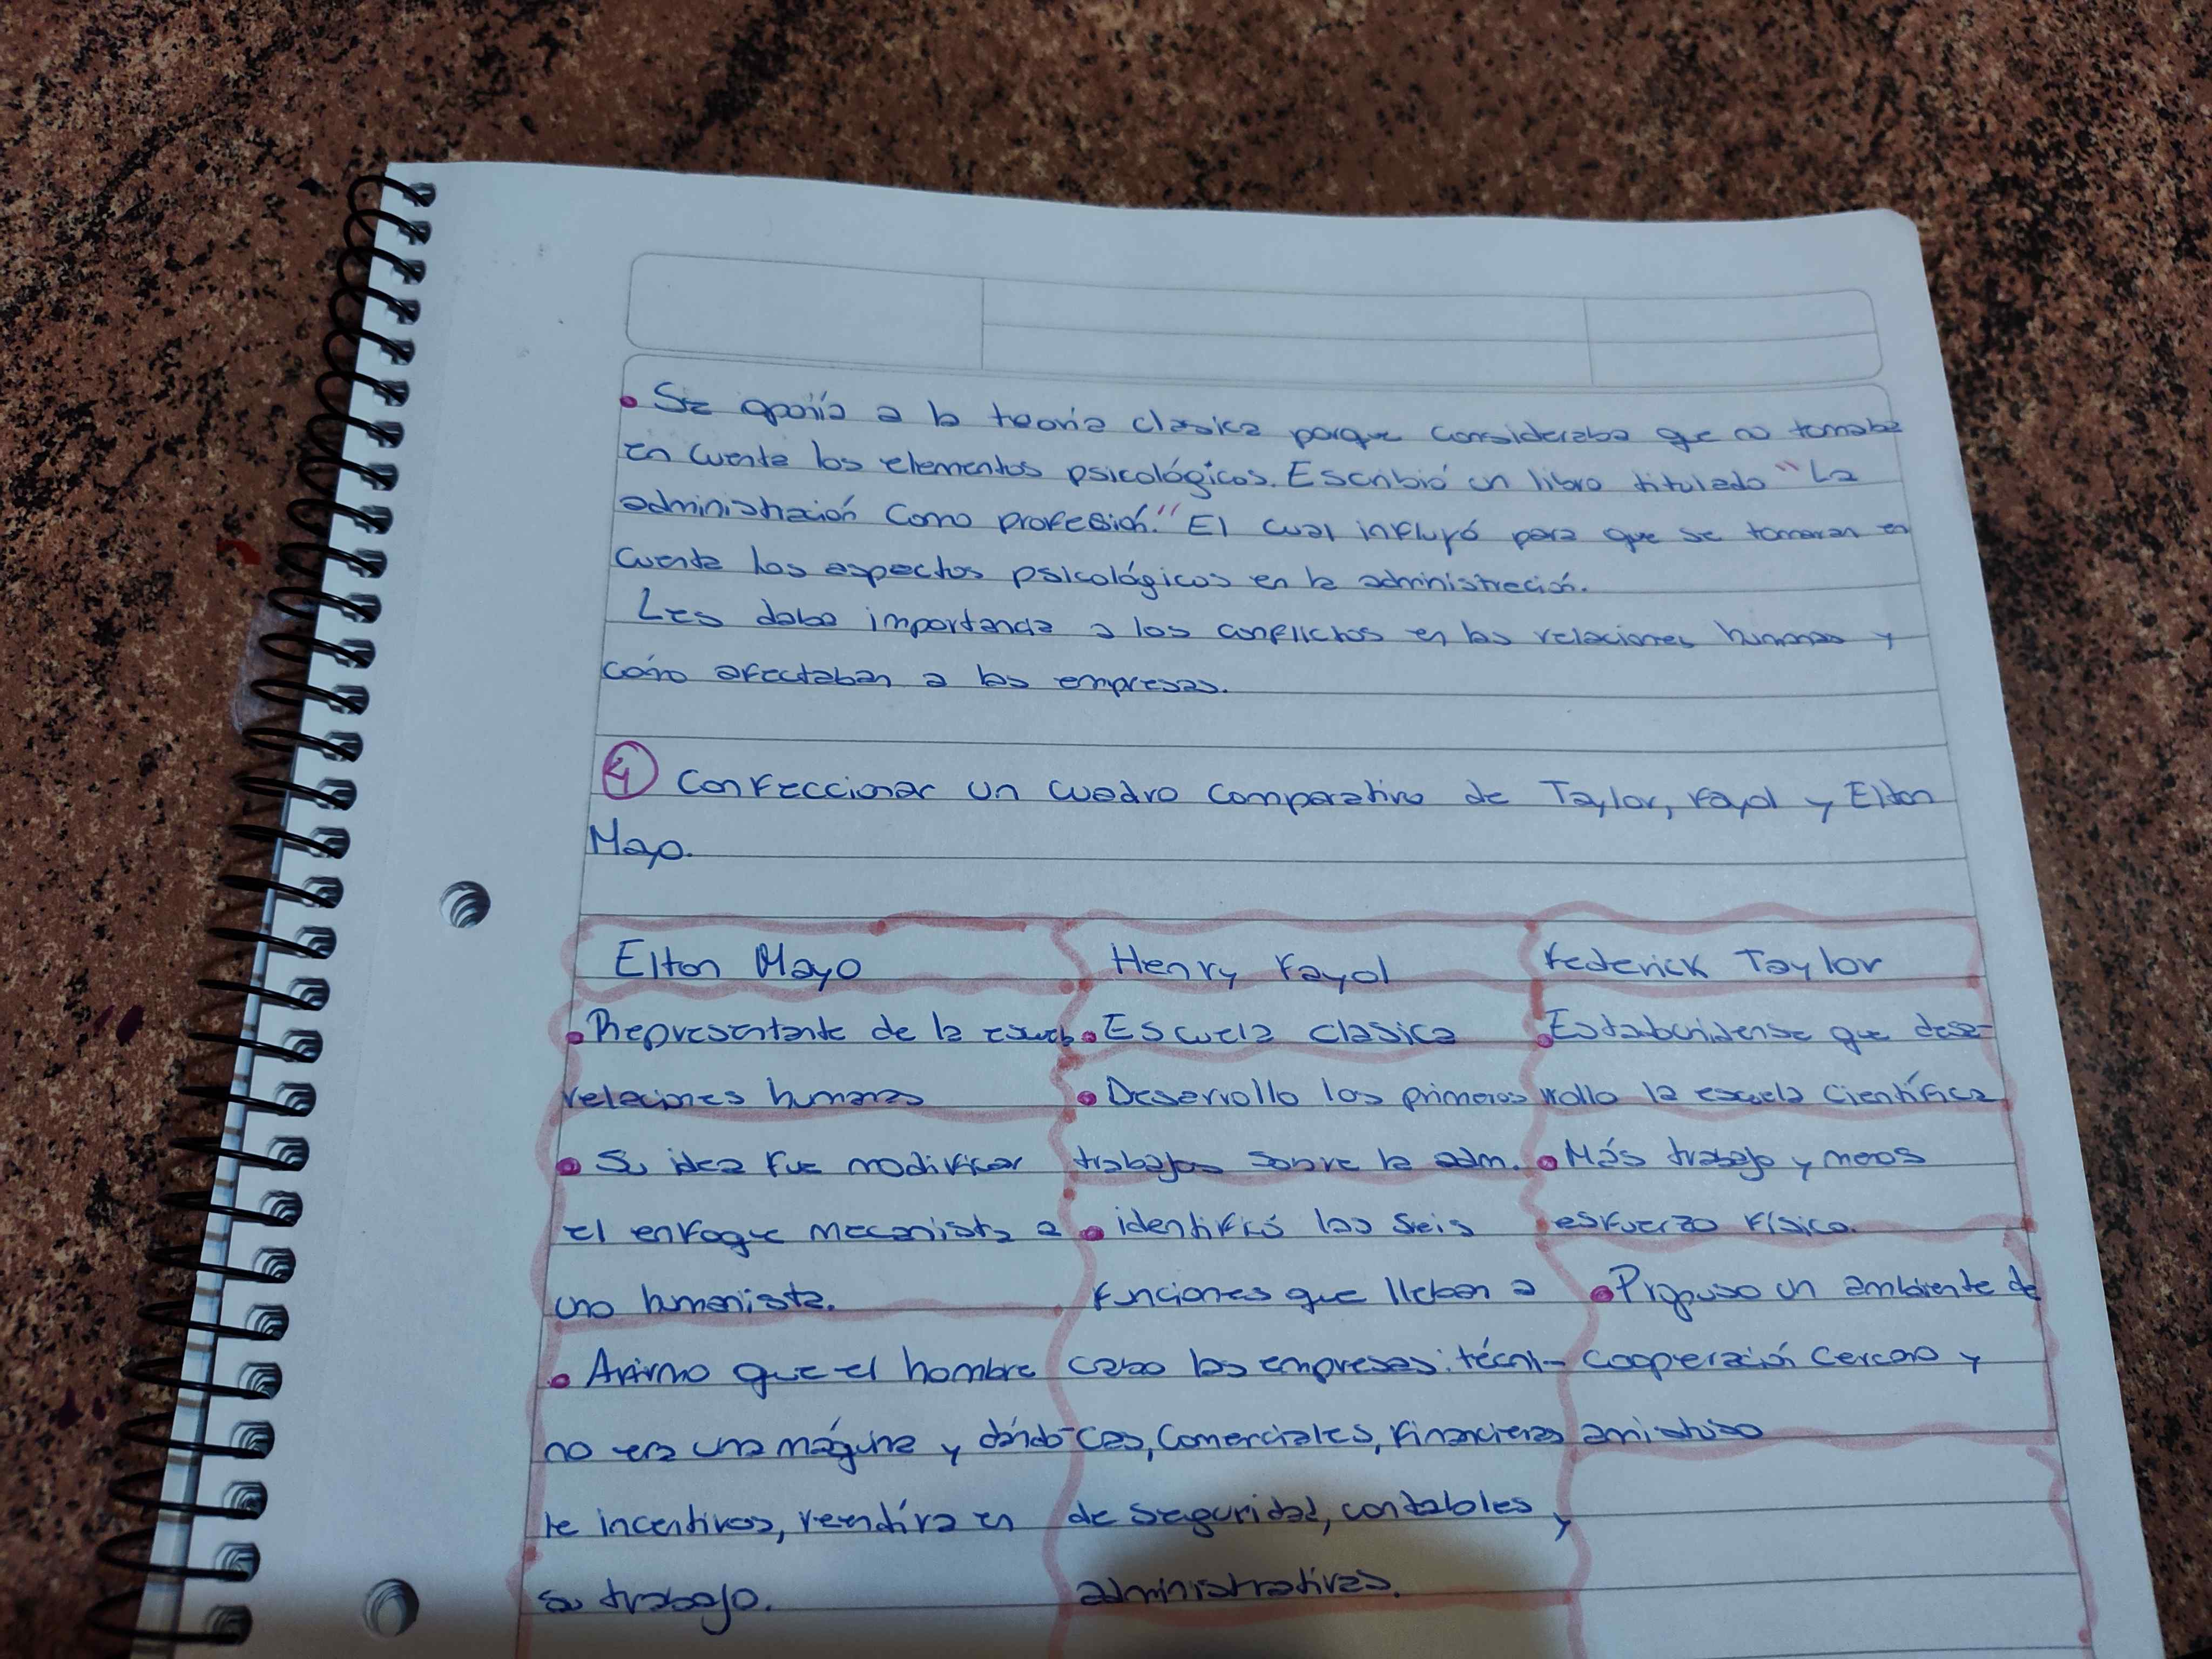 • Se oponía a la teoría clasica porque consideraba que no tomaba
en cuenta los elementos psicológicos. Escribió un libro titulado "La
administración como profesión." El cual influyó para que se tomaran en
cuenta los aspectos psicológicos en la administración.
Les daba importancia a los conflictos en las relaciones humanas y
cómo afectaban a las empresas.
4 Confeccionar un cuadro comparativo de Taylor, Fayol y Elton
Mayo.
Elton Mayo
• Representante de la escuela
relaciones humanas
• Su idea fue modificar
el enfoque mecanista a
uno humanista.
• Afirmo que el hombre
no era una máquina y dándo-
le incentivos, reendíra en
su trabajo.
Henry Fayol
• Escuela clasica
• Desarrollo los primeros
trabajos sobre la adm.
• identificó las seis
funciones que lleban a
cabo las empresas: técni-
cas, comerciales, financieras
de seguridad, contables y
administrativas.
Federick Taylor
• Estadounidense que desa-
rrollo la escuela científica
• Más trabajo y menos
esfuerzo físico.
• Propuso un ambiente de
cooperación cercano y
amistoso